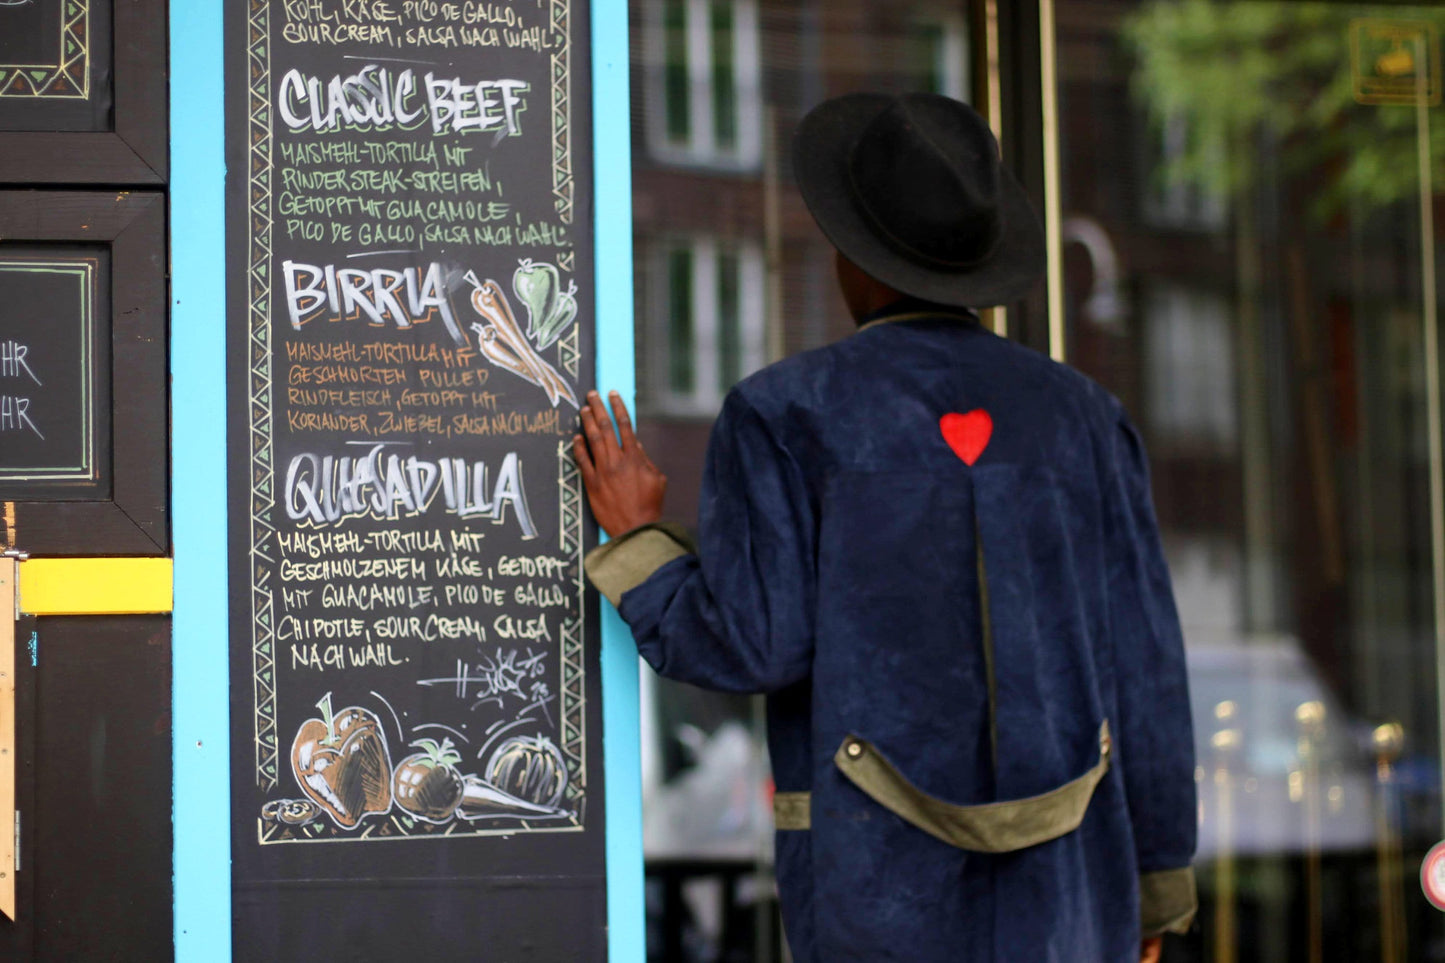 KOHL, KÄSE, PICO DE GALLO,
SOUR CREAM, SALSA NACH WAHL.
CLASSIC BEEF
MAISMEHL-TORTILLA MIT
RINDERSTEAK-STREIFEN,
GETOPPT MIT GUACAMOLE,
PICO DE GALLO, SALSA NACH WAHL.
BIRRIA
MAISMEHL-TORTILLA MIT
GESCHMORTEN PULLED
RINDFLEISCH, GETOPPT MIT
KORIANDER, ZWIEBEL, SALSA NACH WAHL
QUESADILLA
MAISMEHL-TORTILLA MIT
GESCHMOLZENEM KÄSE, GETOPPT
MIT GUACAMOLE, PICO DE GALLO,
CHIPOTLE, SOUR CREAM, SALSA
NACH WAHL.
HR
HR